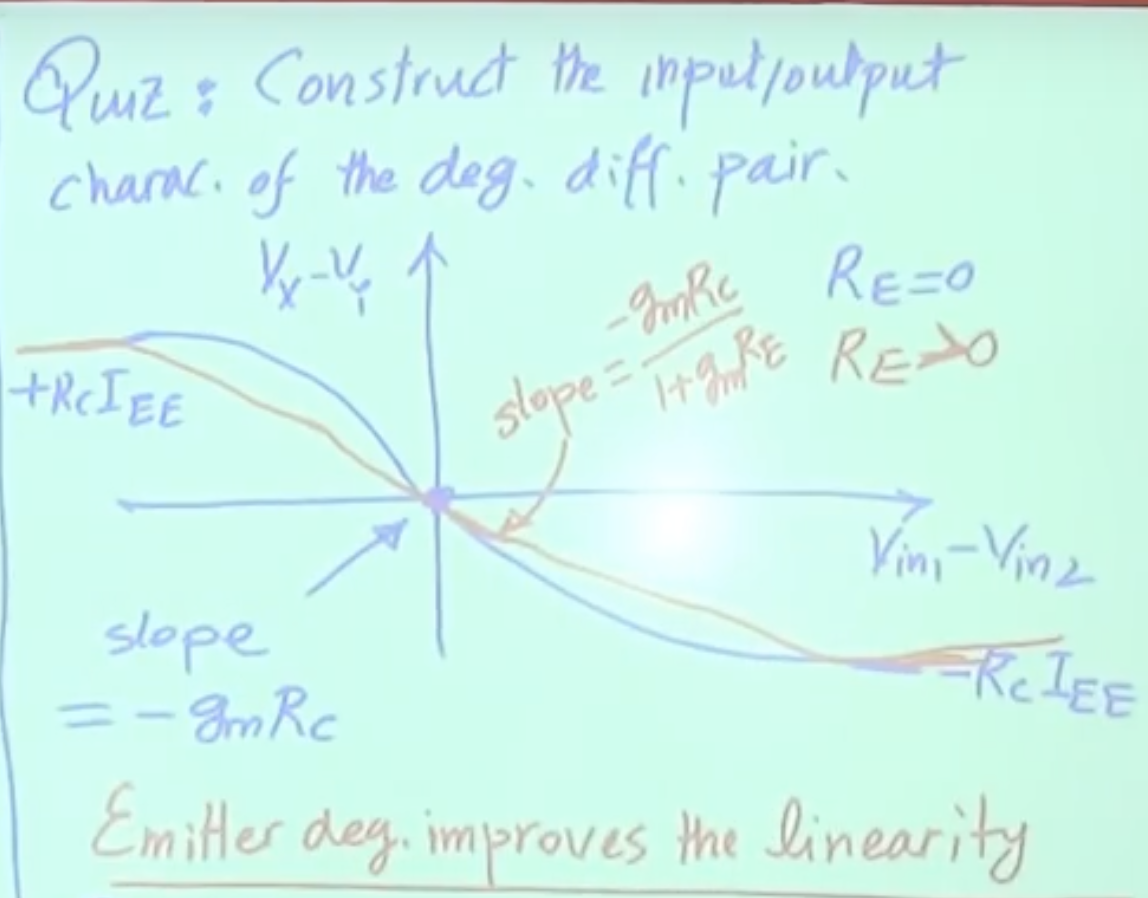 Quiz: Construct the input/output
charac. of the deg. diff. pair.
Vx-VY
RE=0
RE>0
slope = -gmRc / 1+gmRE
+RcIEE
Vin1-Vin2
slope
= -gmRc
-RcIEE
Emitter deg. improves the linearity